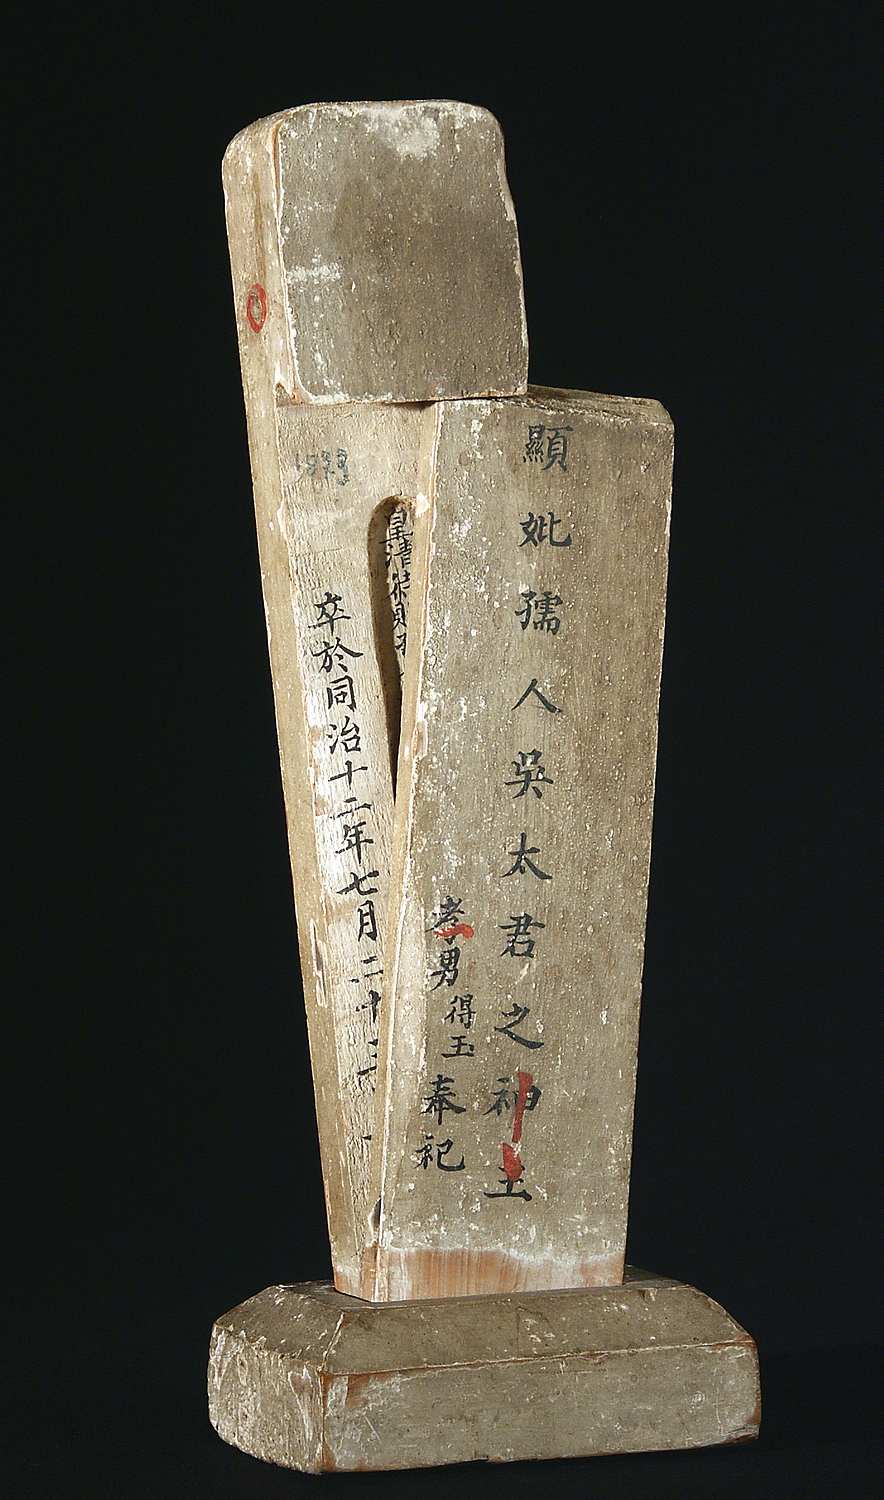 顯妣孺人吳太君之神主
孝男得玉奉祀
皇清
卒於同治十二年七月二十三